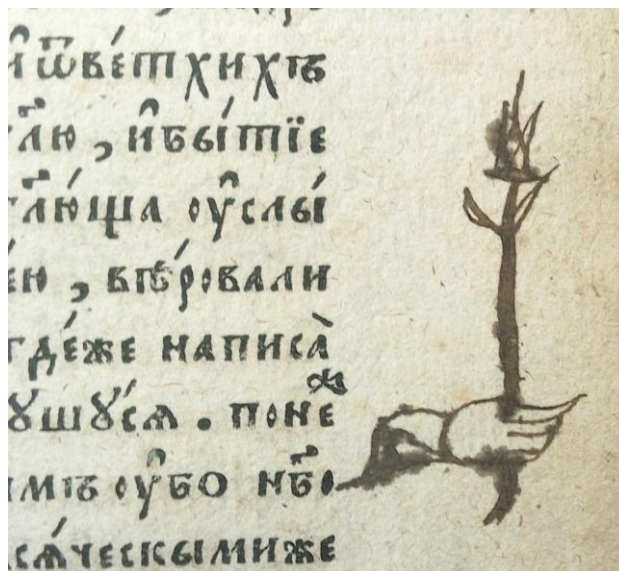 и҆ ѿве́тхихъ
гл҃ю, и҆бы́тїе
гл҃ю́ща оу҆слы́
ею, вѣ́ровали
где́же написа̀
ꙋшꙋ́сѧ. поне́ж
имъ оу҆бо нб҃о
всѧ́ческымиже